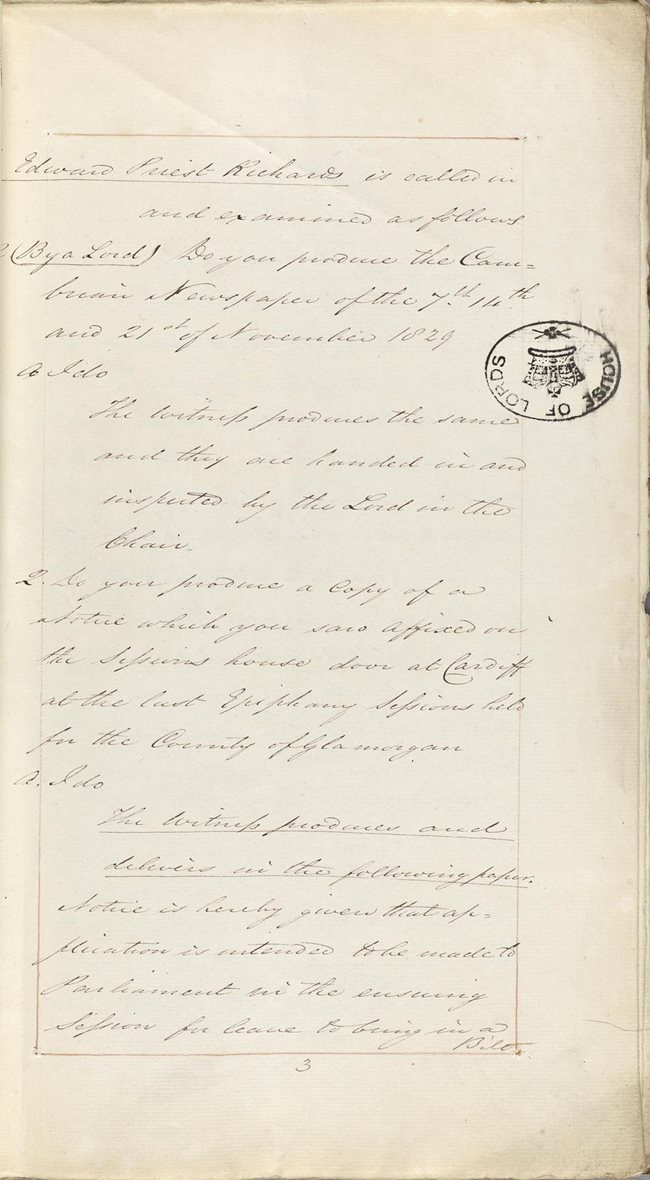 Edward Priest Richards is called in
and examined as follows
2 (By a Lord) Do you produce the Cam=
brian Newspaper of the 7th. 14th
and 21st of November 1829
A I do
The Witness produces the same
and they are handed in and
inspected by the Lord in the
Chair.
2. Do you produce a Copy of a
Notice which you saw affixed on
the Sessions house door at Cardiff
at the last Epiphany Sessions held
for the County of Glamorgan
A. I do
The Witness produces and
delivers in the following paper.
Notice is hereby given that ap=
plication is intended to be made to
Parliament in the ensuing
Session for leave to bring in a
Bill
3
HOUSE OF LORDS